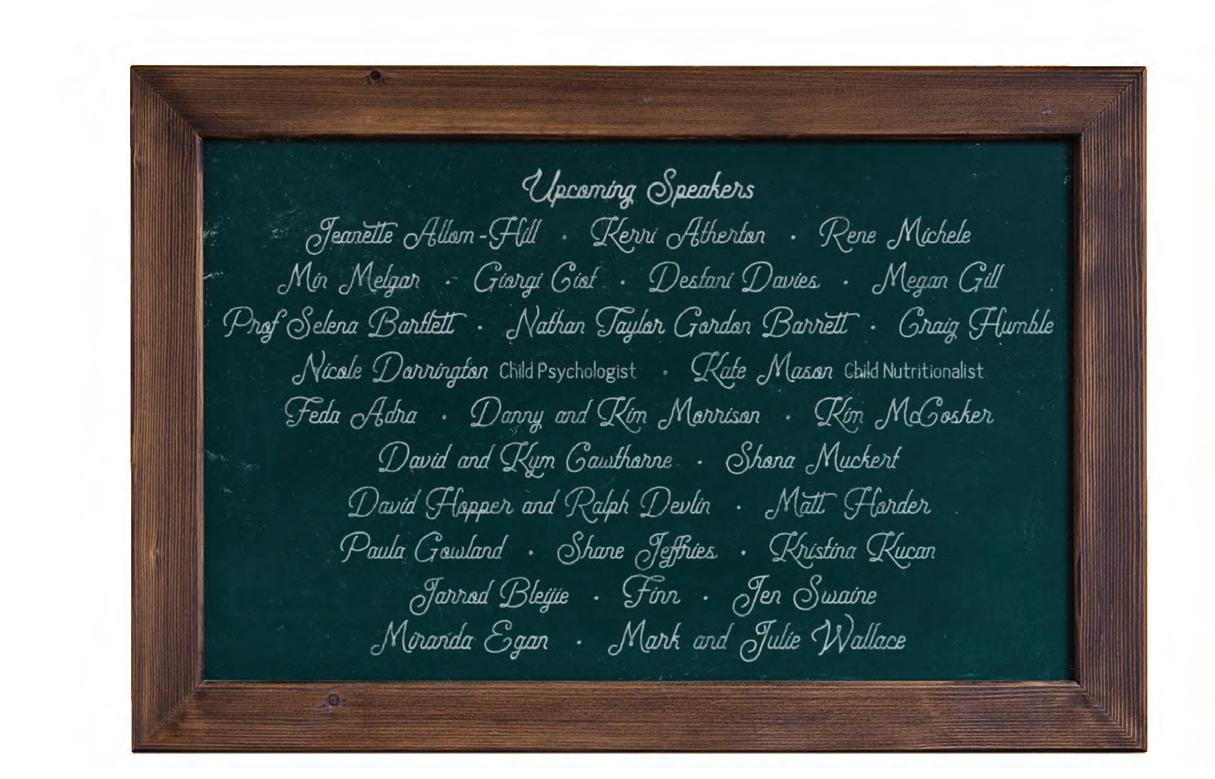 Upcoming Speakers
Jeanette Allom-Hill · Kerri Atherton · Rene Michele
Min Melgar · Giorgi Ciof · Destani Davies · Megan Gill
Prof Selena Bartlett · Nathan Taylor Gordon Barrett · Craig Humble
Nicole Dorrington Child Psychologist · Kate Mason Child Nutritionalist
Feda Adra · Danny and Kim Morrison · Kim McCosker
David and Kym Cawthorne · Shona Muckert
David Hopper and Ralph Devlin · Matt Harder
Paula Gowland · Shane Jeffries · Kristina Kucan
Jarrod Bleijie · Finn · Jen Swaine
Miranda Egan · Mark and Julie Wallace